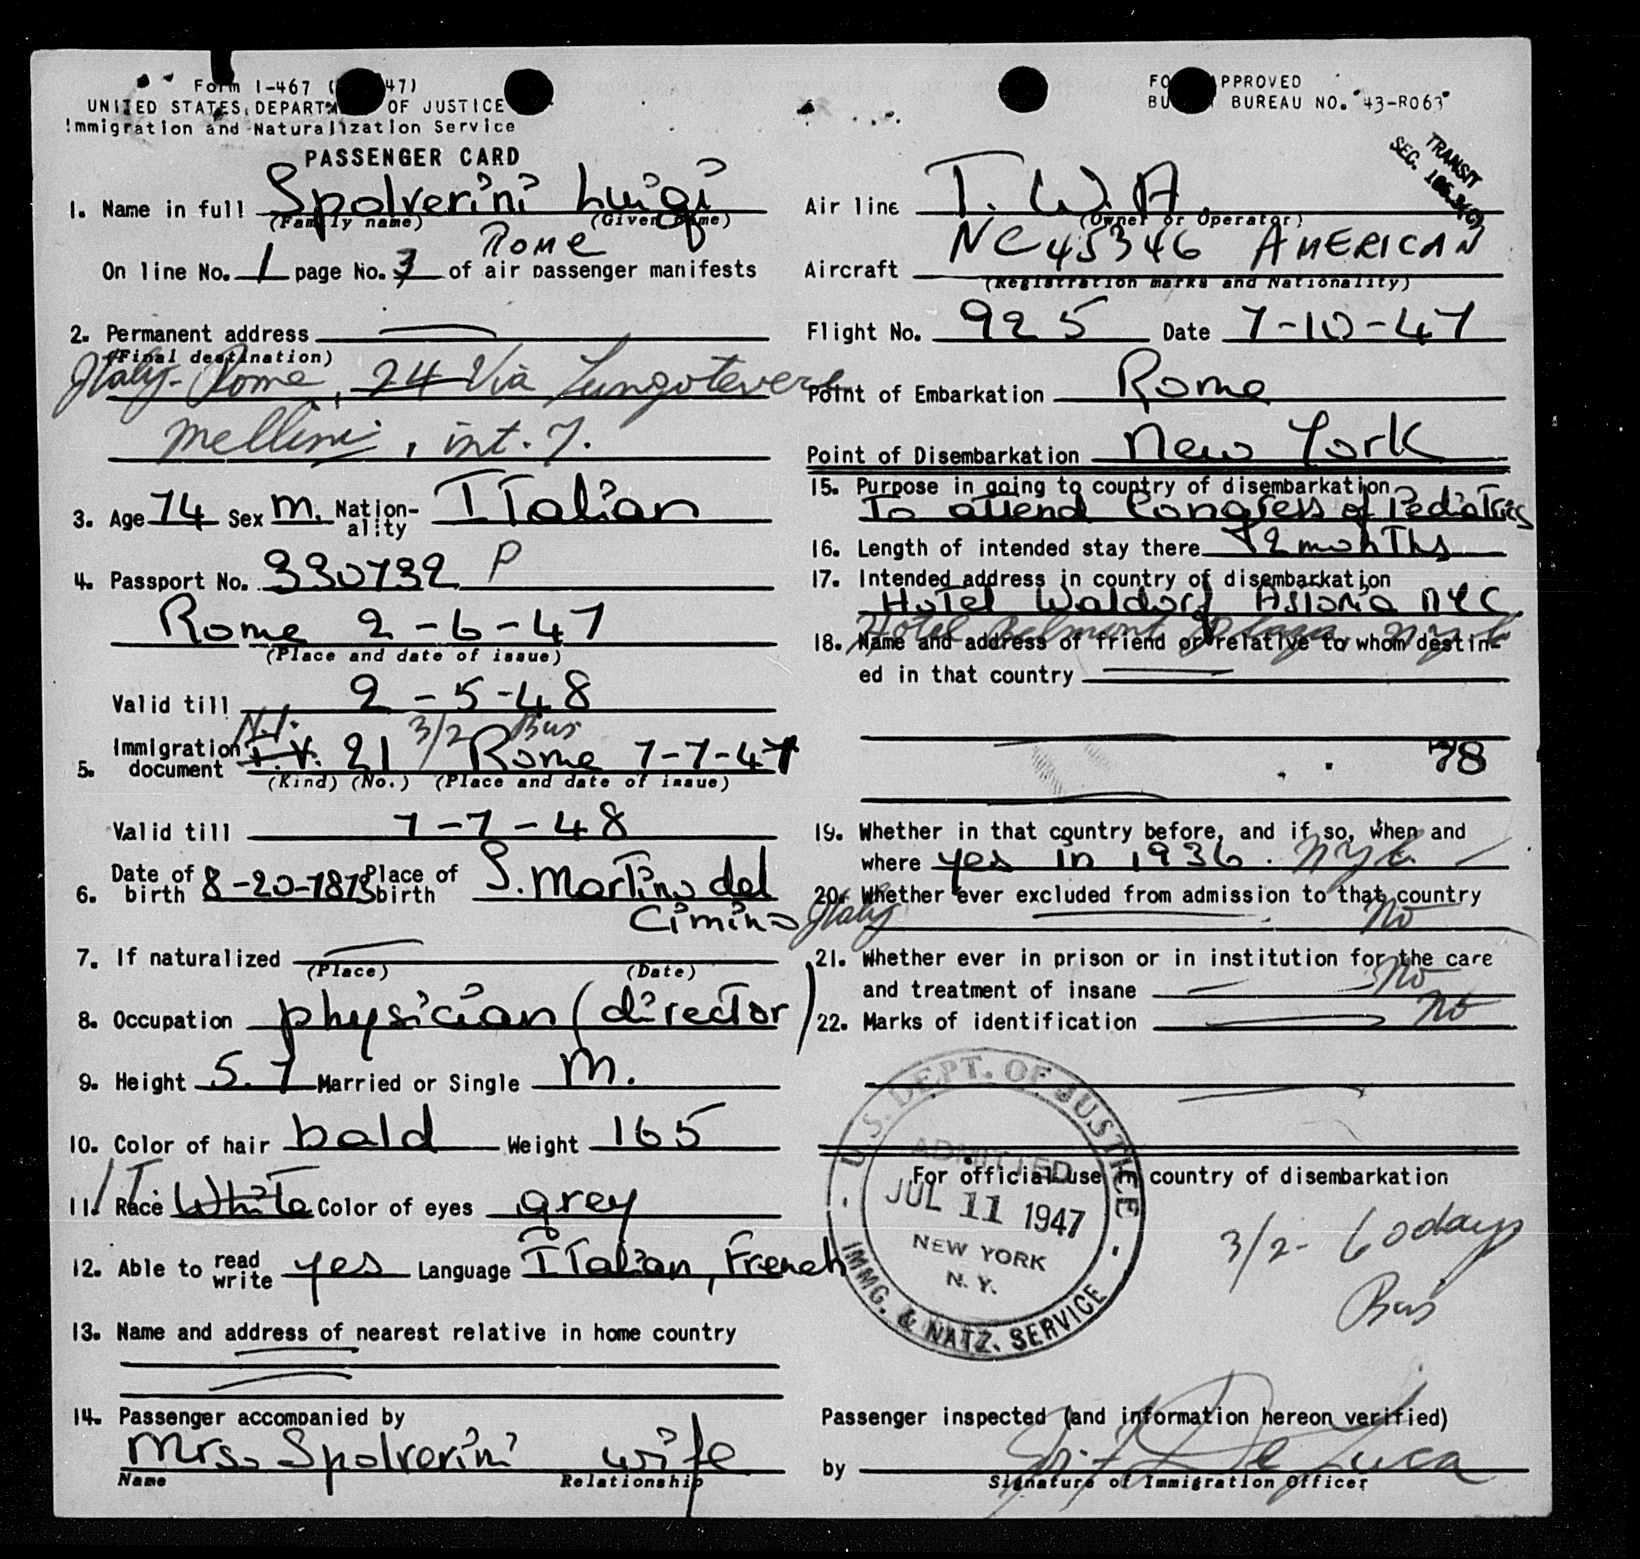 Form I-467 ( 47)
UNITED STATES DEPARTM OF JUSTICE
Immigration and Naturalization Service
PASSENGER CARD
FO PPROVED
BU BUREAU NO. 43-R063
TRANSIT
SEC.
1. Name in full Spolverini Luigi
(Family name) (Given name)
Rome
On line No. 1 page No. 3 of air passenger manifests
2. Permanent address
(Final destination)
Italy - Rome, 24 Via Lungotevere
Mellini, int. 7.
3. Age 74 Sex M. Nation-ality Italian
4. Passport No. 330732 P
Rome 2-6-47
(Place and date of issue)
Valid till 2-5-48
N.I. 3/2 Bus
5. Immigration document T.V. 21 Rome 7-7-47
(Kind) (No.) (Place and date of issue)
Valid till 7-7-48
6. Date of birth 8-20-1873 Place of birth S. Martino del
Cimino Italy
7. If naturalized
(Place) (Date)
8. Occupation physician (director)
9. Height 5.7 Married or Single M.
10. Color of hair bald Weight 165
IT.
11. Race White Color of eyes grey
12. Able to read write yes Language Italian, French
13. Name and address of nearest relative in home country
14. Passenger accompanied by
Mrs. Spolverini wife
Name Relationship
Air line T.W.A.
(Owner or Operator)
Aircraft NC45346 AMERICAN
(Registration marks and Nationality)
Flight No. 925 Date 7-10-47
Point of Embarkation Rome
Point of Disembarkation New York
15. Purpose in going to country of disembarkation
To attend Congress of Pediatrics
16. Length of intended stay there 2 months
17. Intended address in country of disembarkation
Hotel Waldorf Astoria NYC
Hotel Belmont Plaza, NYC
18. Name and address of friend or relative to whom destin-
ed in that country
78
19. Whether in that country before, and if so, when and
where yes in 1936. NYC.
20. Whether ever excluded from admission to that country
No
21. Whether ever in prison or in institution for the care
and treatment of insane No
22. Marks of identification No
U.S. DEPT. OF JUSTICE
ADMITTED
JUL 11 1947
NEW YORK
N.Y.
IMMG. & NATZ. SERVICE
For official use in country of disembarkation
3/2- 60 days
Bus
Passenger inspected (and information hereon verified)
by De Luca
Signature of Immigration Officer